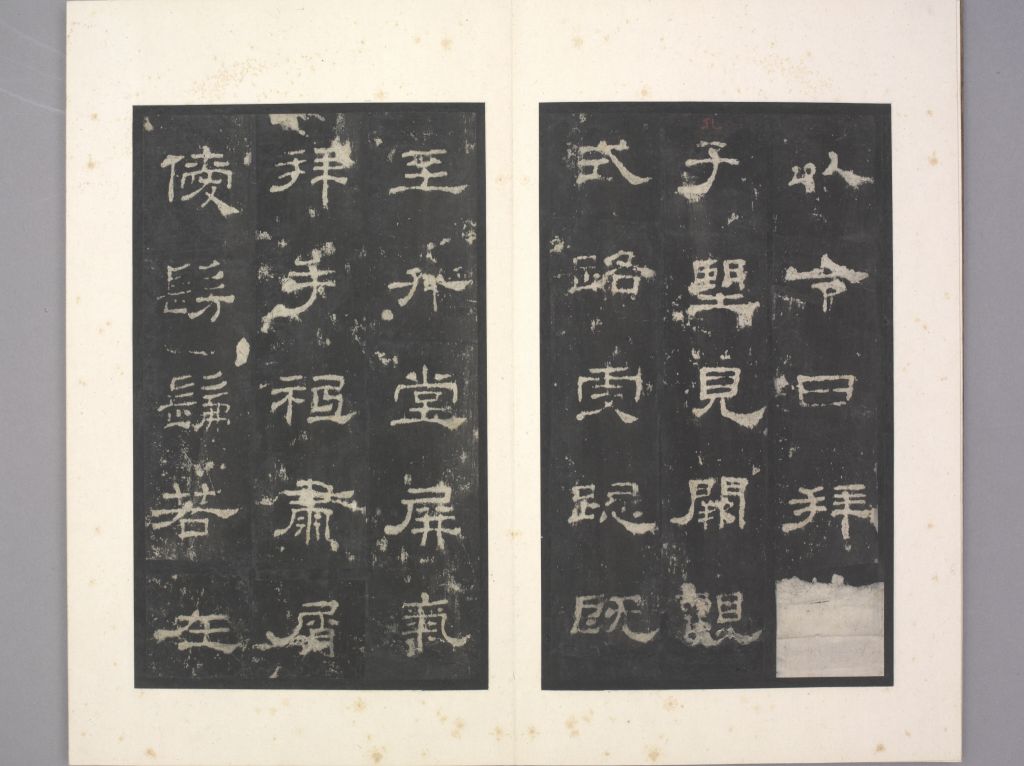 以令日拜
孔子望見闕觀
式路虔跽既
至升堂屏氣
拜手祗肅屑
僾髣髴若在